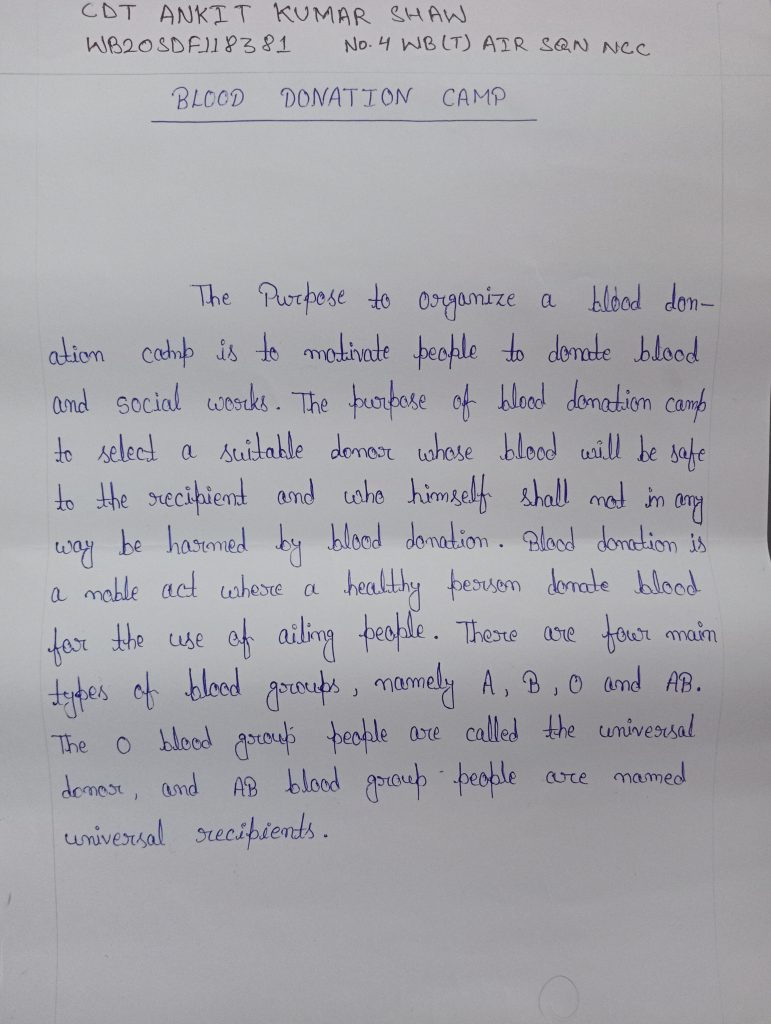 CDT ANKIT KUMAR SHAW
WB20SDFJ118381 No. 4 WB(T) AIR SQN NCC
BLOOD DONATION CAMP
The Purpose to organize a blood don-
ation camp is to motivate people to donate blood
and social works. The purpose of blood donation camp
to select a suitable donor whose blood will be safe
to the recipient and who himself shall not in any
way be harmed by blood donation. Blood donation is
a noble act where a healthy person donate blood
for the use of ailing people. There are four main
types of blood groups, namely A, B, O and AB.
The O blood group people are called the universal
donor, and AB blood group people are named
universal recipients.